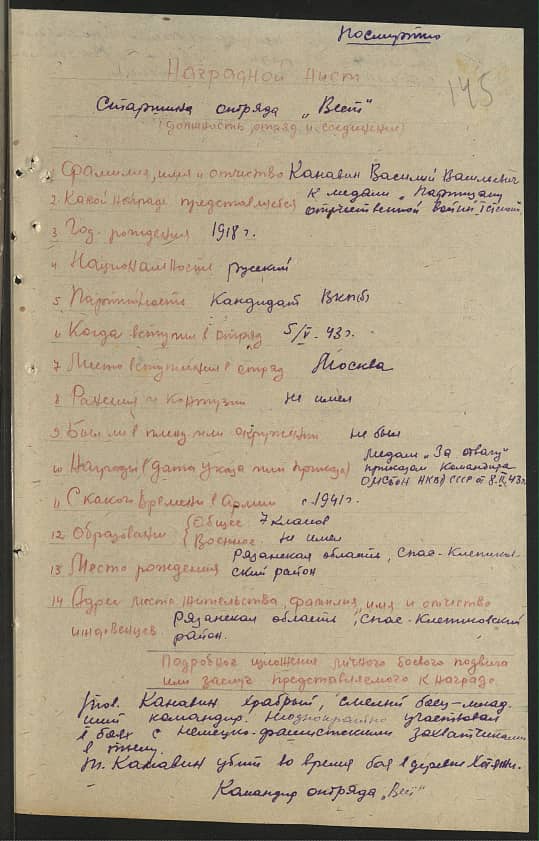 Посмертно
145
Наградной лист
Старшина отряда „Вест"
(должность, отряд и соединение)
1 Фамилия, имя и отчество Канавин Василий Васильевич
2. Какой награде представляется к медали „Партизану
отечественной войны I степени
3 Год рождения 1918 г.
4 Национальность русский
5 Партийность Кандидат ВКП(б)
6 Когда вступил в отряд 5/V-43 г.
7 Место вступления в отряд Москва
8 Ранения и контузии не имел
9 Был ли в плену или окружении не был
10 Награды (дата указа или приказа) медаль „За отвагу"
приказом командира
ОМСБОН НКВД СССР от 8.II.43 г.
11 С какого времени в Армии с 1941 г.
12 Образование Общее 7 классов
Военное не имел
13 Место рождения Рязанская область, Спас-Клепиков-
ский район
14 Адрес места жительства, фамилия, имя и отчество
иждивенцев Рязанская область, Спас-Клепиковский
район.
Подробное изложение личного боевого подвига
или заслуг представляемого к награде.
Тов. Канавин храбрый, смелый боец-млад-
ший командир. Неоднократно участвовал
в боях с немецко-фашистскими захватчиками
в тылу.
Т. Канавин убит во время боя в деревне
Командир отряда „Вест"